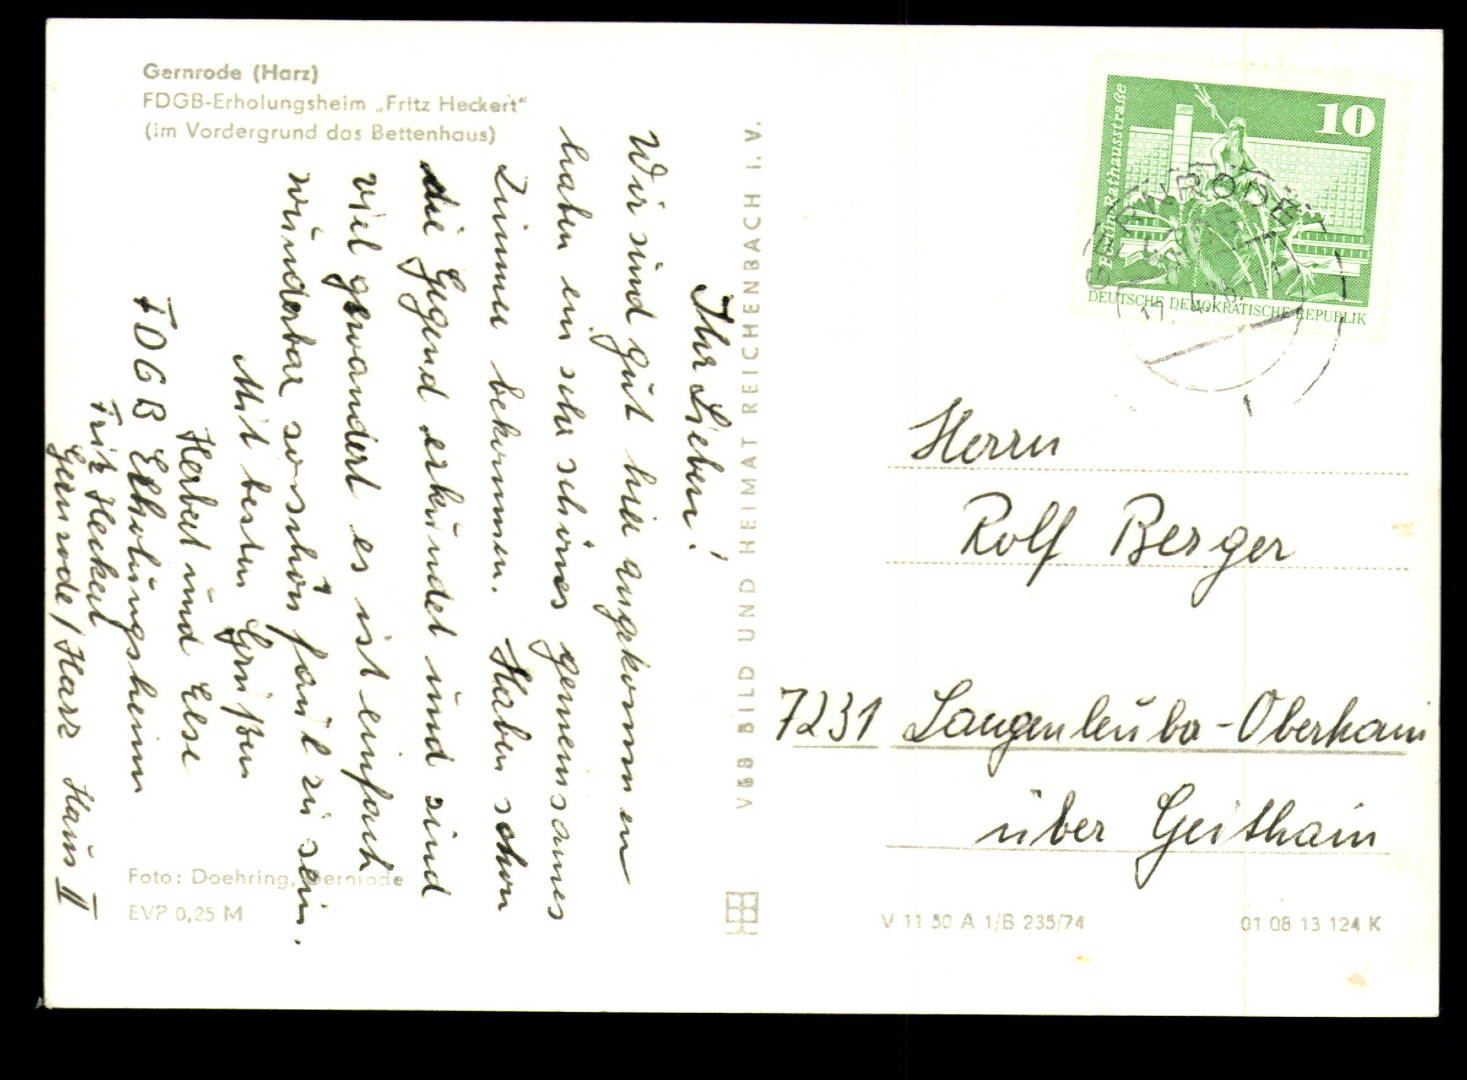 Gernrode (Harz)
FDGB-Erholungsheim „Fritz Heckert"
(im Vordergrund das Bettenhaus)
Ihr Lieben!
Wir sind gut hier angekommen
haben ein sehr schönes gemeinsames
Zimmer bekommen. Haben schon
die Gegend erkundet und sind
viel gewandert es ist einfach
wunderbar so schön faul zu sein.
Mit besten Grüßen
Herbert und Else
FDGB Erholungsheim
Fritz Heckert
Gernrode/Harz Haus II
Foto: Doehring, Gernrode
EVP 0,25 M
VEB BILD UND HEIMAT REICHENBACH I. V.
10
Berlin, Rathausstraße
DEUTSCHE DEMOKRATISCHE REPUBLIK
GERNRODE
Herrn
Rolf Berger
7231 Langenleuba-Oberhain
über Geithain
V 11 50 A 1/B 235/74
01 08 13 124 K